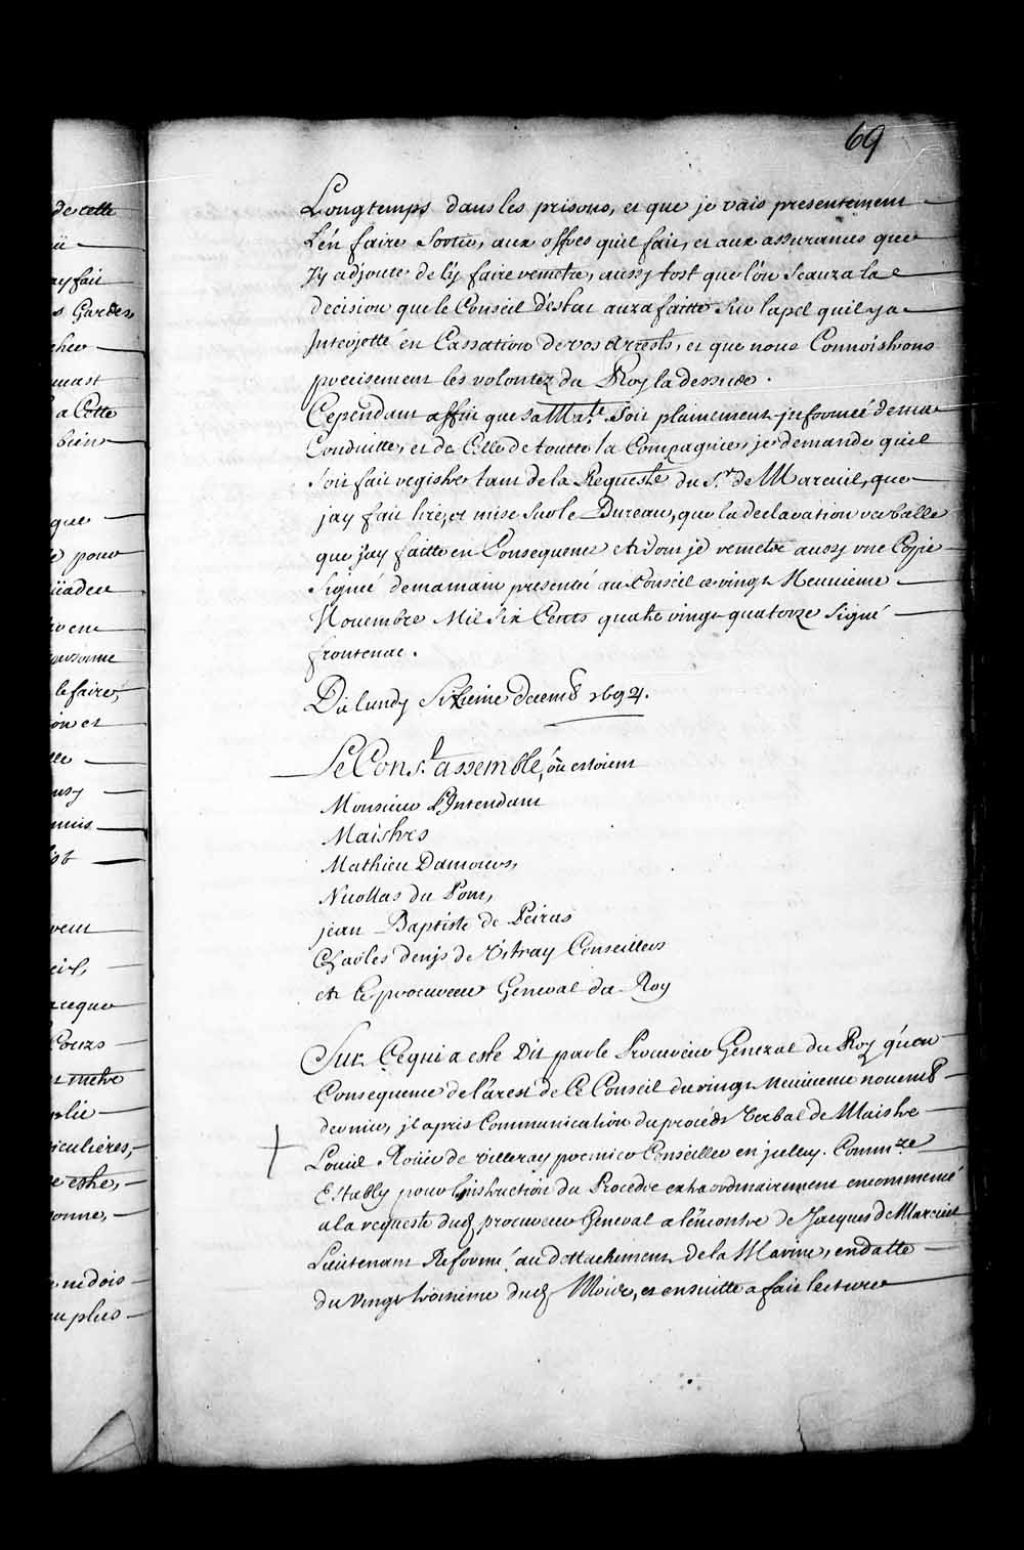 69
Longtemps dans les prisons, et que je vais presentement
L'en faire Sortir, aux offres quil fait, et aux assurances que
J'y adjoute de l'y faire remettre, aussy tost que l'on Scaura la
decision que le Conseil d'estat aura faitte Sur l'apel quil y a
Interjetté en Cassation de vos Arrests, et que nous Connoistrons
precisement les volontez du Roy la dessus.
Cependant affin que sa Maté. Soit plainement informeé de ma
Conduitte, et de Celle de toutte la Compagnie, je demande quil
Soit fait registre tant de la Requeste du Sr. de Mareuil, que
jay fait lire, et mise Sur le Bureau, que la declaration verballe
que j'ay faitte en Consequence et dont je remets aussy une Copie
Signeé de ma main presenté au Conseil ce vingt Neuuieme
Nouembre Mil Six Cents quatre vingt quatorze Signé
frontenac.
Du lundy Sixieme decemb 1694.
Le Cons.l assemblé, ou estoient
Monsieur l'Intendant
Maistres
Mathieu Damours,
Nicollas du Pont,
jean Baptiste de Peiras
Charles denys de Vitray Conseillers
et Le procureur General du Roy
Sur Ce qui a esté Dit par le Procureur General du Roy qu'en
Consequence de l'arest de Ce Conseil du vingt Neuuieme nouemb
dernier, il a pris Communication du procés Verbal de Maistre
Louis Roüer de Villeray premier Conseiller en iceluy. Comm.re
Estably pour l'instruction du Procedre extraordinairement encommencé
a la requeste dud procureur General a l'encontre de Jacques de Mareuil
Lieutenant Reformé au dettachement de la Marine, en datte
du Vingt troisieme dud Mois, et ensuitte a fait lecture
de cette
ay fait
Gardes,
a Cette
bien
que
pour
le faire,
on et
particulieres,
estre,
ne dois
plus